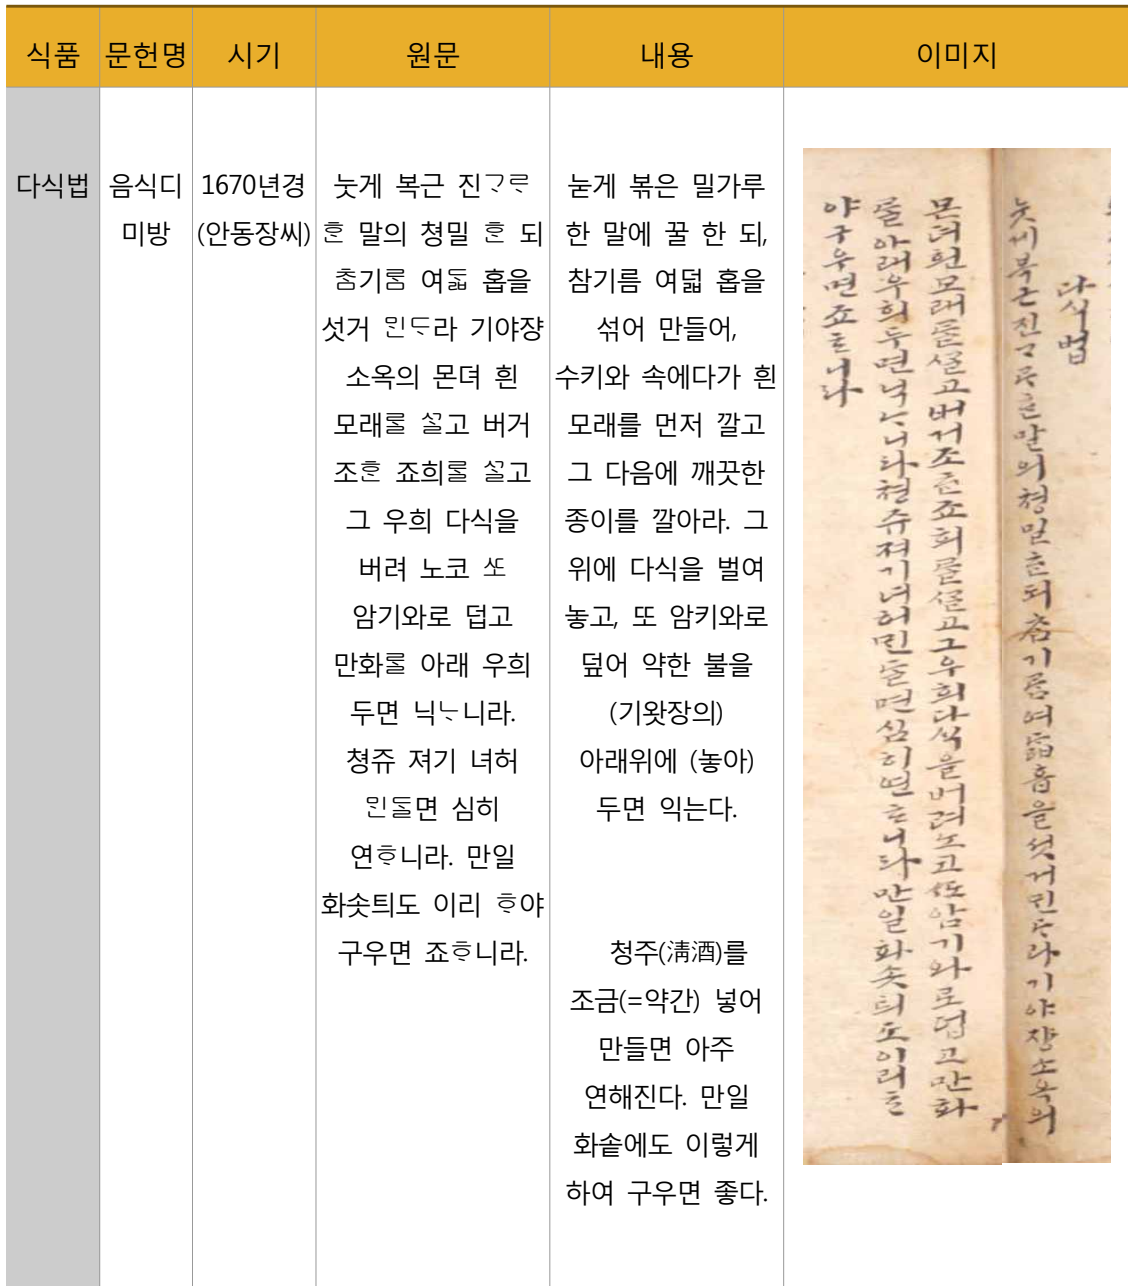 식품 문헌명 시기 원문 내용 이미지
다식법
음식디
미방
1670년경
(안동장씨)
눗게 복근 진ᄀᆞᄅᆞ
ᄒᆞᆫ 말의 쳥밀 ᄒᆞᆫ 되
ᄎᆞᆷ기ᄅᆞᆷ 여ᄃᆞᆲ 홉을
섯거 ᄆᆡᆫᄃᆞ라 기야쟝
소옥의 몬뎌 흰
모래ᄅᆞᆯ ᄭᆞᆯ고 버거
조ᄒᆞᆫ 죠희ᄅᆞᆯ ᄭᆞᆯ고
그 우희 다식을
버려 노코 ᄯᅩ
암기와로 덥고
만화ᄅᆞᆯ 아래 우희
두면 닉ᄂᆞ니라.
쳥쥬 져기 녀허
ᄆᆡᆫᄃᆞᆯ면 심히
연ᄒᆞ니라. 만일
화솟틔도 이리 ᄒᆞ야
구우면 죠ᄒᆞ니라.
눋게 볶은 밀가루
한 말에 꿀 한 되,
참기름 여덟 홉을
섞어 만들어,
수키와 속에다가 흰
모래를 먼저 깔고
그 다음에 깨끗한
종이를 깔아라. 그
위에 다식을 벌여
놓고, 또 암키와로
덮어 약한 불을
(기왓장의)
아래위에 (놓아)
두면 익는다.
청주(淸酒)를
조금(=약간) 넣어
만들면 아주
연해진다. 만일
화솥에도 이렇게
하여 구우면 좋다.
다식법
눗게 복근 진ᄀᆞᄅᆞ ᄒᆞᆫ 말의 쳥밀 ᄒᆞᆫ 되 ᄎᆞᆷ기ᄅᆞᆷ 여ᄃᆞᆲ 홉을 섯거 ᄆᆡᆫᄃᆞ라 기야쟝 소옥의
몬뎌 흰 모래ᄅᆞᆯ ᄭᆞᆯ고 버거 조ᄒᆞᆫ 죠희ᄅᆞᆯ ᄭᆞᆯ고 그 우희 다식을 버려 노코 ᄯᅩ 암기와로 덥고 만화
ᄅᆞᆯ 아래 우희 두면 닉ᄂᆞ니라 쳥쥬 져기 녀허 ᄆᆡᆫᄃᆞᆯ면 심히 연ᄒᆞ니라 만일 화솟틔도 이리 ᄒᆞ
야 구우면 죠ᄒᆞ니라